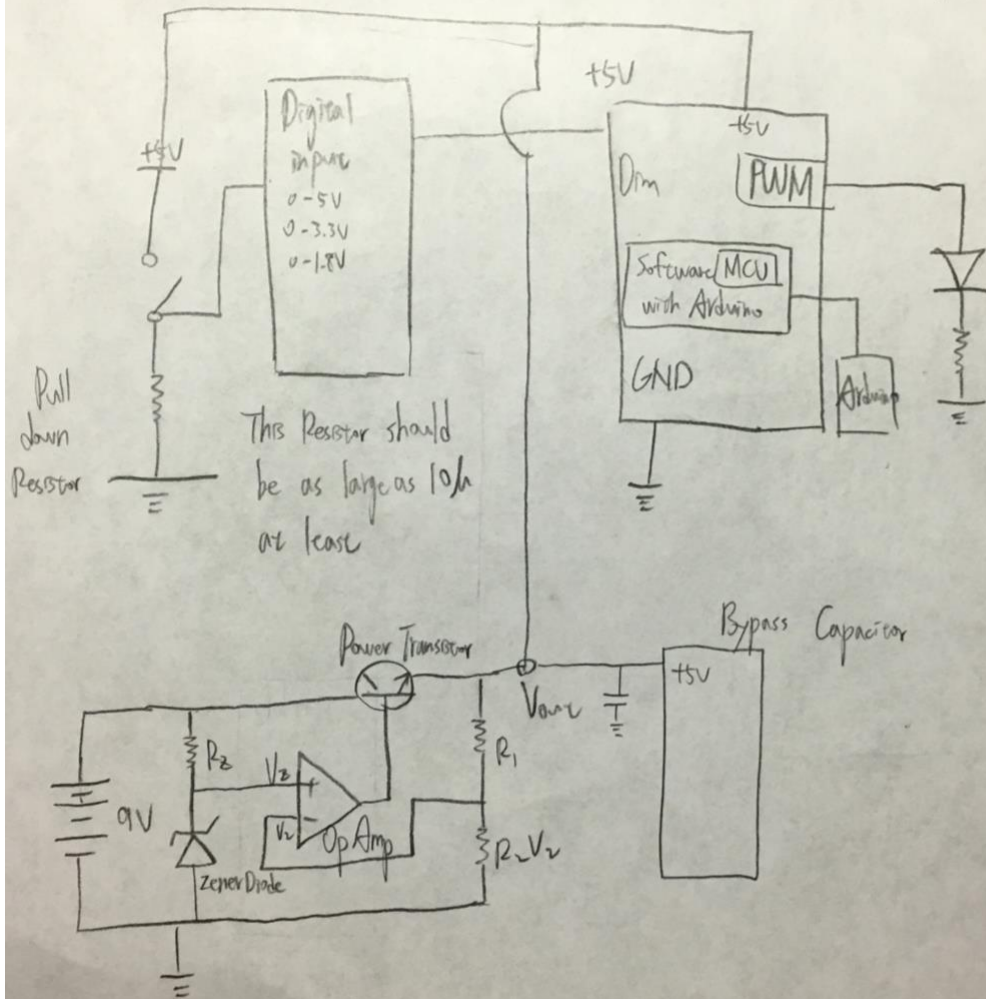 +5V
Digital
input
0-5V
0-3.3V
0-1.8V
+5V
+5V
Dim
PWM
Software MCU
with Arduino
GND
Arduino
Pull
down
Resistor
This Resistor should
be as large as
at least
Power Transistor
Bypass Capacitor
+5V
Vout
R1
Rz
Vz
+
9V
V2
-
Op Amp
R2 V2
Zener Diode